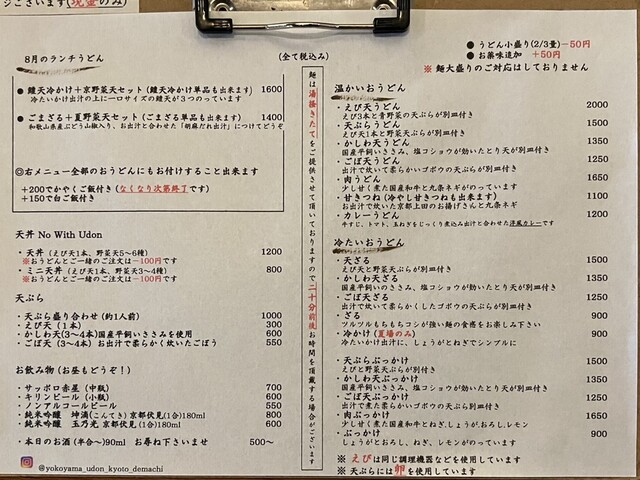 ジございます(現金のみ)
8月のランチうどん
(全て税込み)
● 鱧天冷かけ+京野菜天セット(鱧天冷かけ単品も出来ます) 1600
冷たいかけ出汁の上に一口サイズの鱧天が3つのっています
● ごまざる+夏野菜天セット(ごまざる単品も出来ます) 1400
和歌山県産ぶどう山椒入り、お出汁と合わせた「胡麻だれ出汁」につけてどうぞ
◎右メニュー全部のおうどんにもお付けすること出来ます
+200でかやくご飯付き(なくなり次第終了です)
+150で白ご飯付き
天丼 No With Udon
・天丼(えび天1本、野菜天5〜6種) 1200
※おうどんとご一緒のご注文は−100円です
・ミニ天丼(えび天1本、野菜天3〜4種) 800
※おうどんとご一緒のご注文は−100円です
天ぷら
・天ぷら盛り合わせ(約1人前) 1000
・えび天(1本) 300
・かしわ天(3〜4本)国産平飼いささみを使用 600
・ごぼ天(3〜4本)お出汁で柔らかく炊いたごぼう 550
お飲み物(お昼もどうぞ!)
・サッポロ赤星(中瓶) 700
・キリンビール(小瓶) 600
・ノンアルコールビール 550
・純米吟醸 坤滴(こんてき)京都伏見(1合)180ml 800
・純米吟醸 玉乃光 京都伏見(1合)180ml 600
・本日のお酒(半合〜)90ml お尋ね下さいませ 500〜
@yokoyama_udon_kyoto_demachi
麺は湯掻きたてをご提供させて頂いておりますので二十分前後お時間を頂戴する場合がございます
● うどん小盛り(2/3量)−50円
● お薬味追加 +50円
※ 麺大盛りのご対応はしておりません
温かいおうどん
・えび天うどん 2000
えび3本と青野菜の天ぷらが別皿付き
・天ぷらうどん 1500
えび天1本と野菜天ぷらが別皿付き
・かしわ天うどん 1350
国産平飼いささみ、塩コショウが効いたとり天が別皿付き
・ごぼ天うどん 1250
出汁で炊いて柔らかいゴボウの天ぷら別皿付き
・肉うどん 1350
少し甘く煮た国産和牛と九条ネギがのっています
・甘きつね(冷やし甘きつねも出来ます) 1100
お出汁で炊いた京都上田のお揚げさんと九条ネギ
・カレーうどん 1200
牛すじ、トマト、玉ねぎをじっくり煮込み出汁と合わせた洋風カレーです
冷たいおうどん
・天ざる 1500
えび天と野菜天ぷらが別皿付き
・かしわ天ざる 1350
国産平飼いささみ、塩コショウが効いたとり天が別皿付き
・ごぼ天ざる 1250
出汁で炊いて柔らかくしたゴボウの天ぷら別皿付き
・ざる 900
ツルツルもちもちコシが強い麺の食感をお楽しみ下さい
・冷かけ(夏場のみ) 900
冷たいかけ出汁に、しょうがとねぎでシンプルに
・天ぷらぶっかけ 1500
えび天と野菜天ぷらが別皿付き
・かしわ天ぶっかけ 1350
国産平飼いささみ、塩コショウが効いたとり天が別皿付き
・ごぼ天ぶっかけ 1250
出汁で煮た柔らかいゴボウの天ぷら別皿付き
・肉ぶっかけ 1350
少し甘く煮た国産和牛とねぎ,しょうが,おろし,レモン
・ぶっかけ 900
しょうがとおろし、ねぎ、レモンがのっています
※ えびは同じ調理機器などを使用しています
※ 天ぷらには卵を使用しています